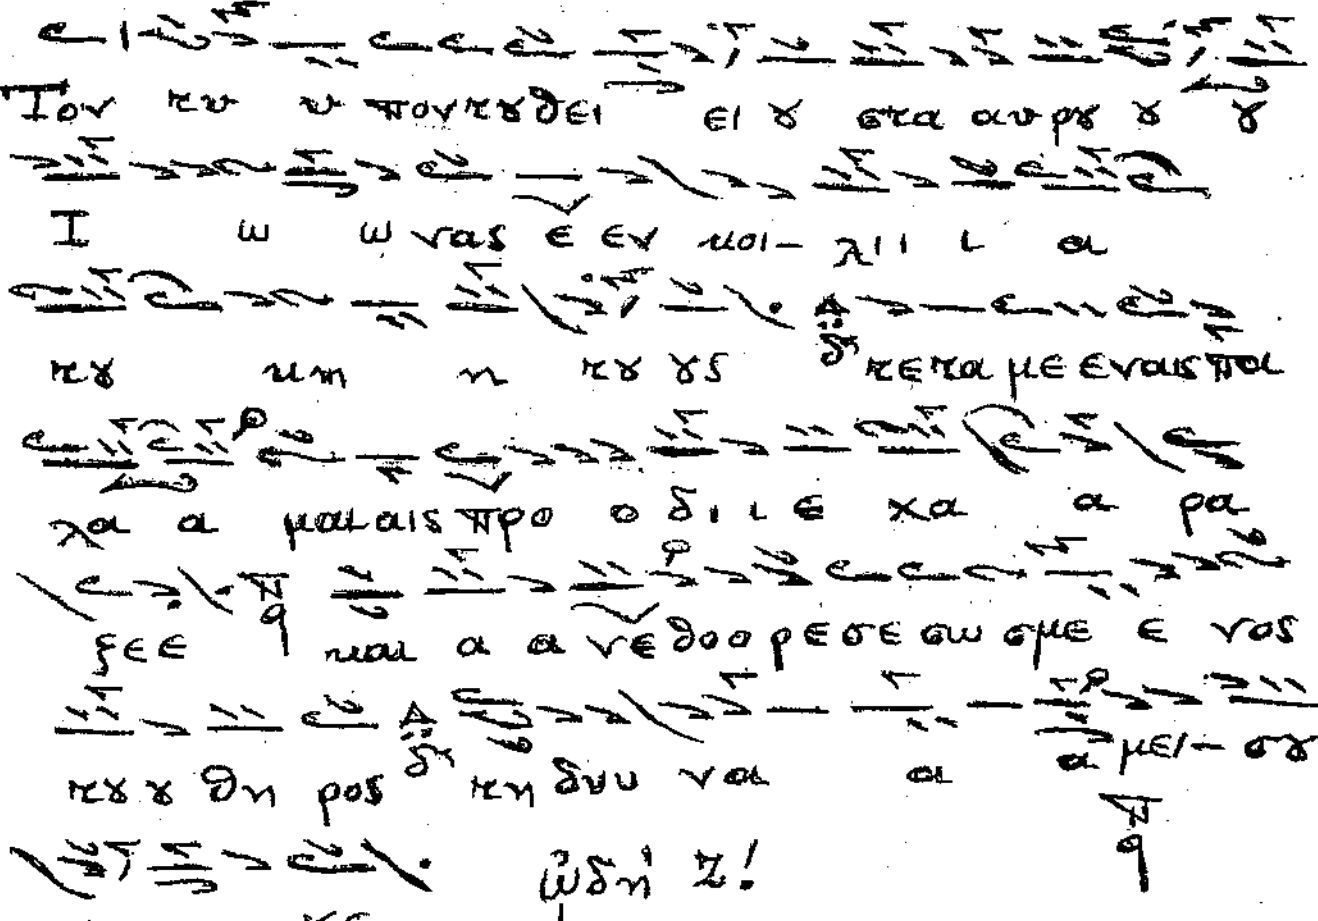 Τον τυ υ πον τȣ θει ει ȣ στα αυ ρȣ ȣ ȣ
Ι ω ω νας ε εν κοι- λι ι ι α
τȣ κη η τȣ ȣς τε τα με ε ναις πα
λα α μαι αις προ ο δι ι ε χα α ρα
ξε ε και α α νε θο ο ρε σε σω σμε ε νος
τȣ ȣ θη ρος τη δυ υ να α α μει- σȣ
ᾠδή ζ!